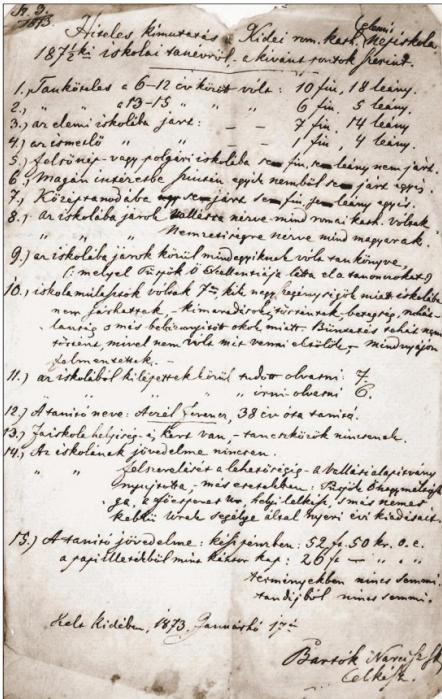 1873.
Hiteles kimutatás a Kidei rom. kath. elemi népiskola
187½ki iskolai tanévről a kívánt pontok szerint.
1., Tanköteles a 6-12 év közöt volt: 10 fiu, 18 leány.
2., „ a 13-15 „ „ „ 6 fiu, 5 leány.
3.) az elemi iskolába járt: – – 7 fiu, 14 leány
4.) az ismétlő „ „ – – 1 fiu, 4 leány.
5.) felsőnép- vagy polgári iskolába sem fiu, sem leány nem járt.
6.) Magán intézetbe szintén egyik nemből sem járt egy is.
7.) Középtanodába sem járt sem fiu, sem leány egy is.
8.) az iskolába járok Vallásra nézve mind romai kath. voltak
„ „ „ Nemzetiségre nézve mind magyarak.
9.) az iskolába járok közül mindegyiknek volt tankönyve,
(: melyel Püspök Ő Excellentiája látta el a tanulókat:)
10.) iskola mulasztok voltak 7en, kik nagy szegénységök miatt iskolába
nem járhattak, – kimaradások történtek betegség, ruhát-
lanság s más bebizonyitott okok miatt. Büntetés tehát nem
történt, mivel nem volt mit venni elsőbb, – mindnyájan
felmentettek. –
11.) az iskolából kilépettek közül tudott olvasni: 7.
„ „ „ „ irni-olvasni 6.
12.) A tanitó neve: Aczél Ferencz, 38 év óta tanitó.
13.) Faiskola helyiség, s kert van, – taneszközök nincsenek.
14.) Az iskolának jövedelme nincsen.
„ „ felszerelését a lehetőségig a Vallási alapitvány
nyujtotta, más esetekben: Püspök Ő
ga, a főesperes ur, helyi lelkész, s más nemes
keblü urak segélye által nyeri évi kiadásait.
15.) A tanitó jövedelme: készpénzben: 52 fr. 50 kr. o. é.
a papi illetékből mint kántor kap: 26 ft – „ „ „
terményekben nincs semmi.
tandijból nincs semmi.
Kelt Kidében, 1873. Januárhó 17én
Bartók
lelkész.